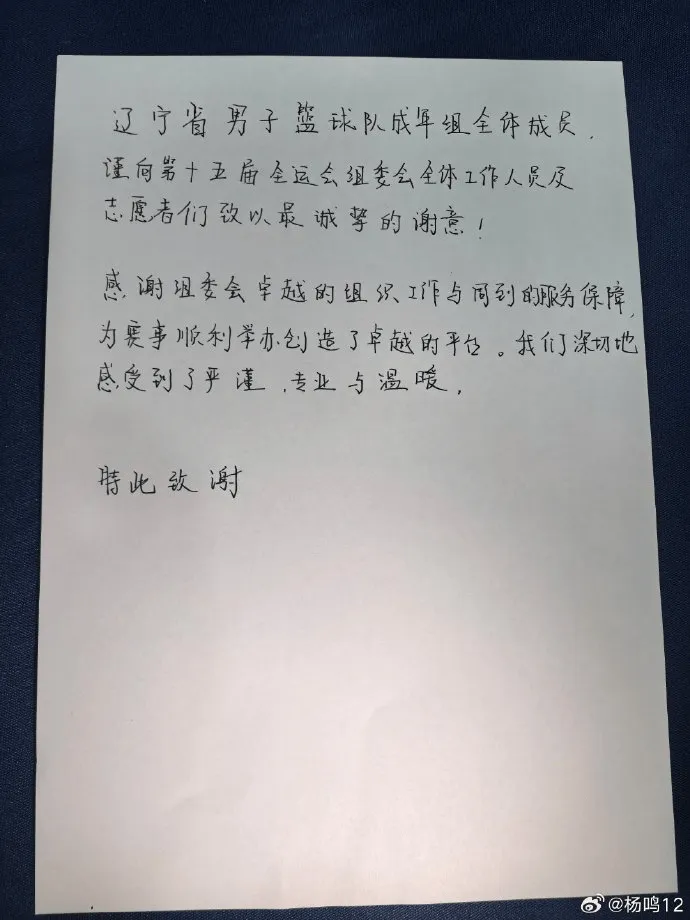 辽宁省男子篮球队成年组全体成员，
谨向第十五届全运会组委会全体工作人员及
志愿者们致以最诚挚的谢意！
感谢组委会卓越的组织工作与周到的服务保障，
为赛事顺利举办创造了卓越的平台。我们深切地
感受到了严谨、专业与温暖。
特此致谢
@杨鸣12